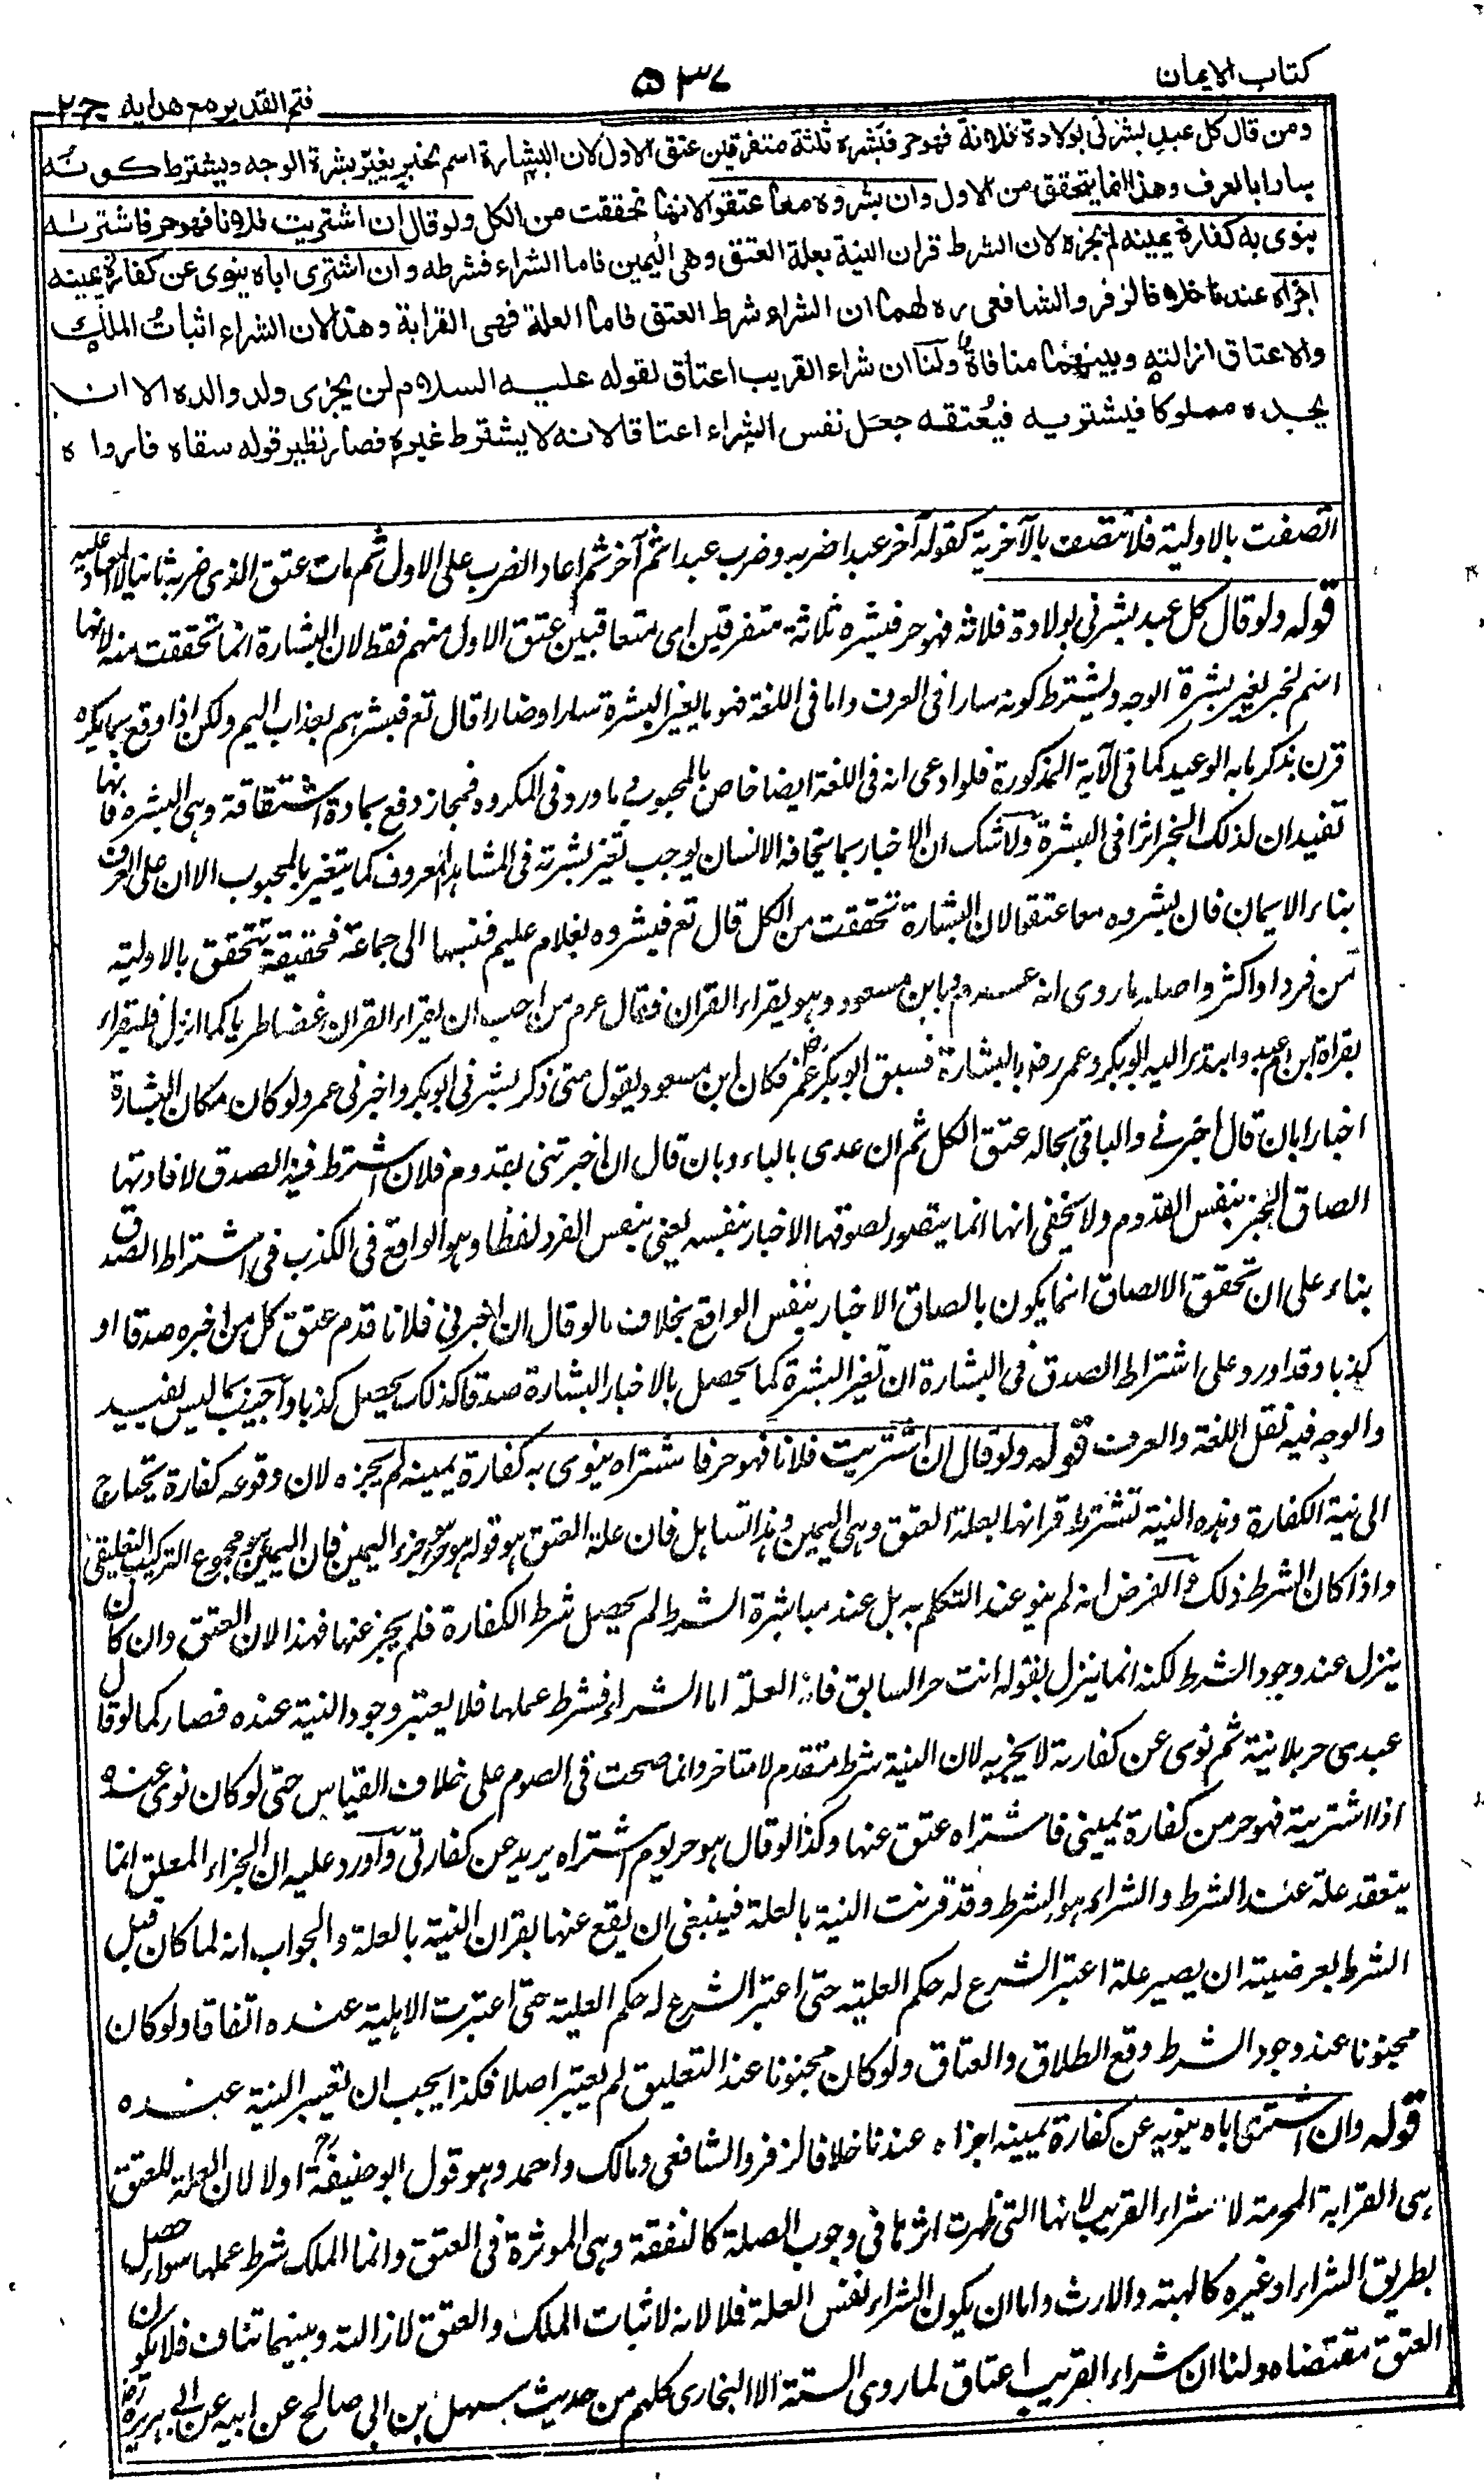 كتاب الايمان
٥٣٧
فتح القدير مع هدايه ج٢
ومن قال كل عبد بشرنى بولادة فلانة فهو حر فبشره ثلثة متفرقين عتق الاول لان البشارة اسم لخبر يغير بشرة الوجه ويشترط كونه
سارا بالعرف وهذا انما يتحقق من الاول وان بشروه معا عتقوا لانها تحققت من الكل ولو قال ان اشتريت فلانا فهو حر فاشتراه
ينوى به كفارة يمينه لم يجزه لان الشرط قران النية بعلة العتق وهى اليمين فاما الشراء فشرطه وان اشترى اباه ينوى عن كفارة يمينه
اجزاه عندنا خلافا لزفر والشافعى ره لهما ان الشراء شرط العتق فاما العلة فهى القرابة وهذا لان الشراء اثبات الملك
والاعتاق ازالته وبينهما منافاة ولنا ان شراء القريب اعتاق لقوله عليه السلام لن يجزى ولد والده الا ان
يجده مملوكا فيشتريه فيعتقه جعل نفس الشراء اعتاقا لانه لا يشترط غيره فصار نظير قوله سقاه فارواه
اتصفت بالاولية فلا تتصف بالآخرية كقوله آخر عبد اضربه وضرب عبدا ثم آخر ثم اعاد الضرب على الاول ثم مات عتق الذى ضربه ثانيا لا المعاد عليه
قوله ولو قال كل عبد بشرنى بولادة فلانة فهو حر فبشره ثلاثة متفرقين اى متعاقبين عتق الاول منهم فقط لان البشارة انما تحققت منه لانها
اسم لخبر يغير بشرة الوجه ويشترط كونه سارا فى العرف واما فى اللغة فهو ما يغير البشرة سارا او ضارا قال تع فبشرهم بعذاب اليم ولكن اذا وقع بما يكره
قرن بذكر ما به الوعيد كما فى الآية المذكورة فلو ادعى انه فى اللغة ايضا خاص بالمحبوب وما ورد فى المكروه فمجاز دفع بمادة اشتقاقه وهى البشرة فانها
تفيد ان لذلك الخبر اثرا فى البشرة ولا شك ان الاخبار بما يخافه الانسان يوجب تغير بشرته فى المشاهد المعروف كما يتغير بالمحبوب الا ان على العرف
بناء الايمان فان بشروه معا عتقوا لان البشارة تحققت من الكل قال تع فبشروه بغلام عليم فنسبها الى جماعة فحقيقته تتحقق بالاولية
من فرد او اكثر واصله ما روى انه عم مر بابن مسعود وهو يقراء القران فقال عم من احب ان يقراء القران غضا طريا كما انزل فليقراء
بقراة ابن ام عبد وابتدر اليه ابو بكر وعمر رض بالبشارة فسبق ابو بكر عمر فكان ابن مسعود يقول متى ذكر بشرنى ابو بكر واخبرنى عمر ولو كان مكان البشارة
اخبارا بان قال اخبرنى والباقى بحاله عتق الكل ثم ان عدى بالباء وبان قال ان اخبرتنى بقدوم فلان اشترط فيه الصدق لافادتها
الصاق الخبر بنفس القدوم ولا يخفى انها انما يتصور لصوقها الاخبار بنفسه يعنى بنفس الفرد لفظا وهو الواقع فى الكذب فى اشتراط الصدق
بناء على ان تحقق الالصاق انما يكون بالصاق الاخبار بنفس الواقع بخلاف ما لو قال ان اخبرنى فلانا قدم عتق كل من اخبره صدقا او
كذبا وقد اورد على اشتراط الصدق فى البشارة ان تغير البشرة كما يحصل بالاخبار البشارة صدقا كذلك يحصل كذبا واجيب بما ليس بمفيد
والوجه فيه نقل اللغة والعرف قوله ولو قال ان اشتريت فلانا فهو حر فاشتراه ينوى به كفارة يمينه لم يجزه لان وقوعه كفارة يحتاج
الى نية الكفارة وهذه النية تشترط قرانها بعلة العتق وهى اليمين وهذا تساهل فان علة العتق هو قوله هو حر وهو جزء اليمين فان اليمين هو مجموع التركيب التعليقى
واذا كان الشرط ذلك والفرض انه لم ينو عند التكلم به بل عند مباشرة الشرط لم يحصل شرط الكفارة فلم يجز عنها فهذا لان العتق وان كان
ينزل عند وجود الشرط لكنه انما ينزل بقوله انت حر السابق فانه العلة اما الشراء فشرط عملها فلا يعتبر وجود النية عنده فصار كما لو قال
عبدى حر بلا نية ثم نوى عن كفارته لا يجزيه لان النية شرط متقدم لا متاخر وانما صحت فى الصوم على خلاف القياس حتى لو كان نوى عنده
اذا اشتريته فهو حر من كفارة يمينى فاشتراه عتق عنها وكذا لو قال هو حر يوم اشتراه يريد عن كفارتى واورد عليه ان الجزاء المعلق انما
ينعقد علة عند الشرط والشراء هو الشرط وقد قرنت النية بالعلة فينبغى ان يقع عنها بقران النية بالعلة والجواب انه لما كان قبل
الشرط بعرضية ان يصير علة اعتبر الشرع له حكم العلية حتى اعتبر الشرع له حكم العلية حتى اعتبرت الاهلية عنده اتفاقا ولو كان
مجنونا عند وجود الشرط وقع الطلاق والعتاق ولو كان مجنونا عند التعليق لم يعتبر اصلا فكذا يجب ان تعتبر النية عنده
قوله وان اشترى اباه ينويه عن كفارة يمينه اجزاه عندنا خلافا لزفر والشافعى ومالك واحمد وهو قول ابو حنيفة رح اولا لان العلة للعتق
هى القرابة المحرمة لا شراء القريب لانها التى ظهرت اثرها فى وجوب الصلة كالنفقة وهى الموثرة فى العتق وانما الملك شرط عملها سواء حصل
بطريق الشراء او غيره كالهبة والارث واما ان يكون الشراء نفس العلة فلا لانه لاثبات الملك والعتق لازالته وبينهما تناف فلا يكون
العتق مقتضاه ولنا ان شراء القريب اعتاق لما روى الستة الا البخارى كلهم من حديث سهيل بن ابى صالح عن ابيه عن ابى هريرة رض